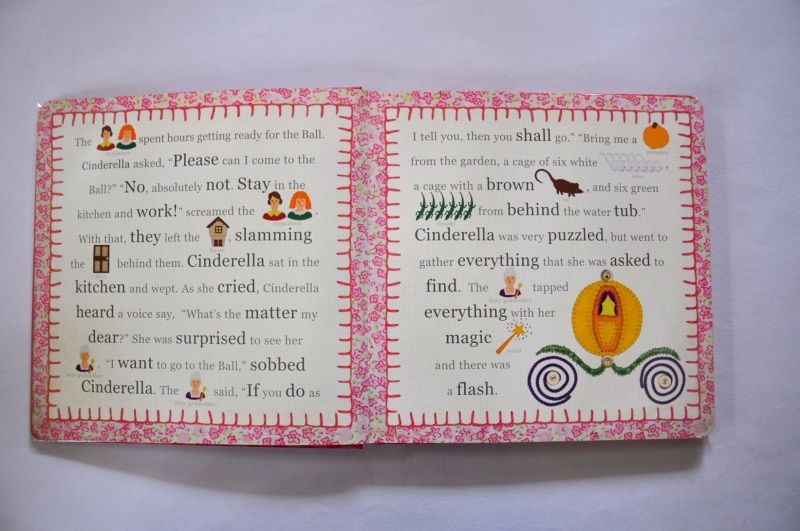 The spent hours getting ready for the Ball.
stepsisters
Cinderella asked, "Please can I come to the
Ball?" "No, absolutely not. Stay in the
kitchen and work!" screamed the .
stepsisters
With that, they left the , slamming
the behind them. Cinderella sat in the
kitchen and wept. As she cried, Cinderella
heard a voice say, "What's the matter my
dear?" She was surprised to see her
. "I want to go to the Ball," sobbed
fairy godmother
Cinderella. The said, "If you do as
fairy godmother
I tell you, then you shall go." "Bring me a
pumpkin
from the garden, a cage of six white ,
mice
a cage with a brown , and six green
from behind the water tub."
Cinderella was very puzzled, but went to
gather everything that she was asked to
find. The tapped
fairy godmother
everything with her
magic
wand
and there was
a flash.